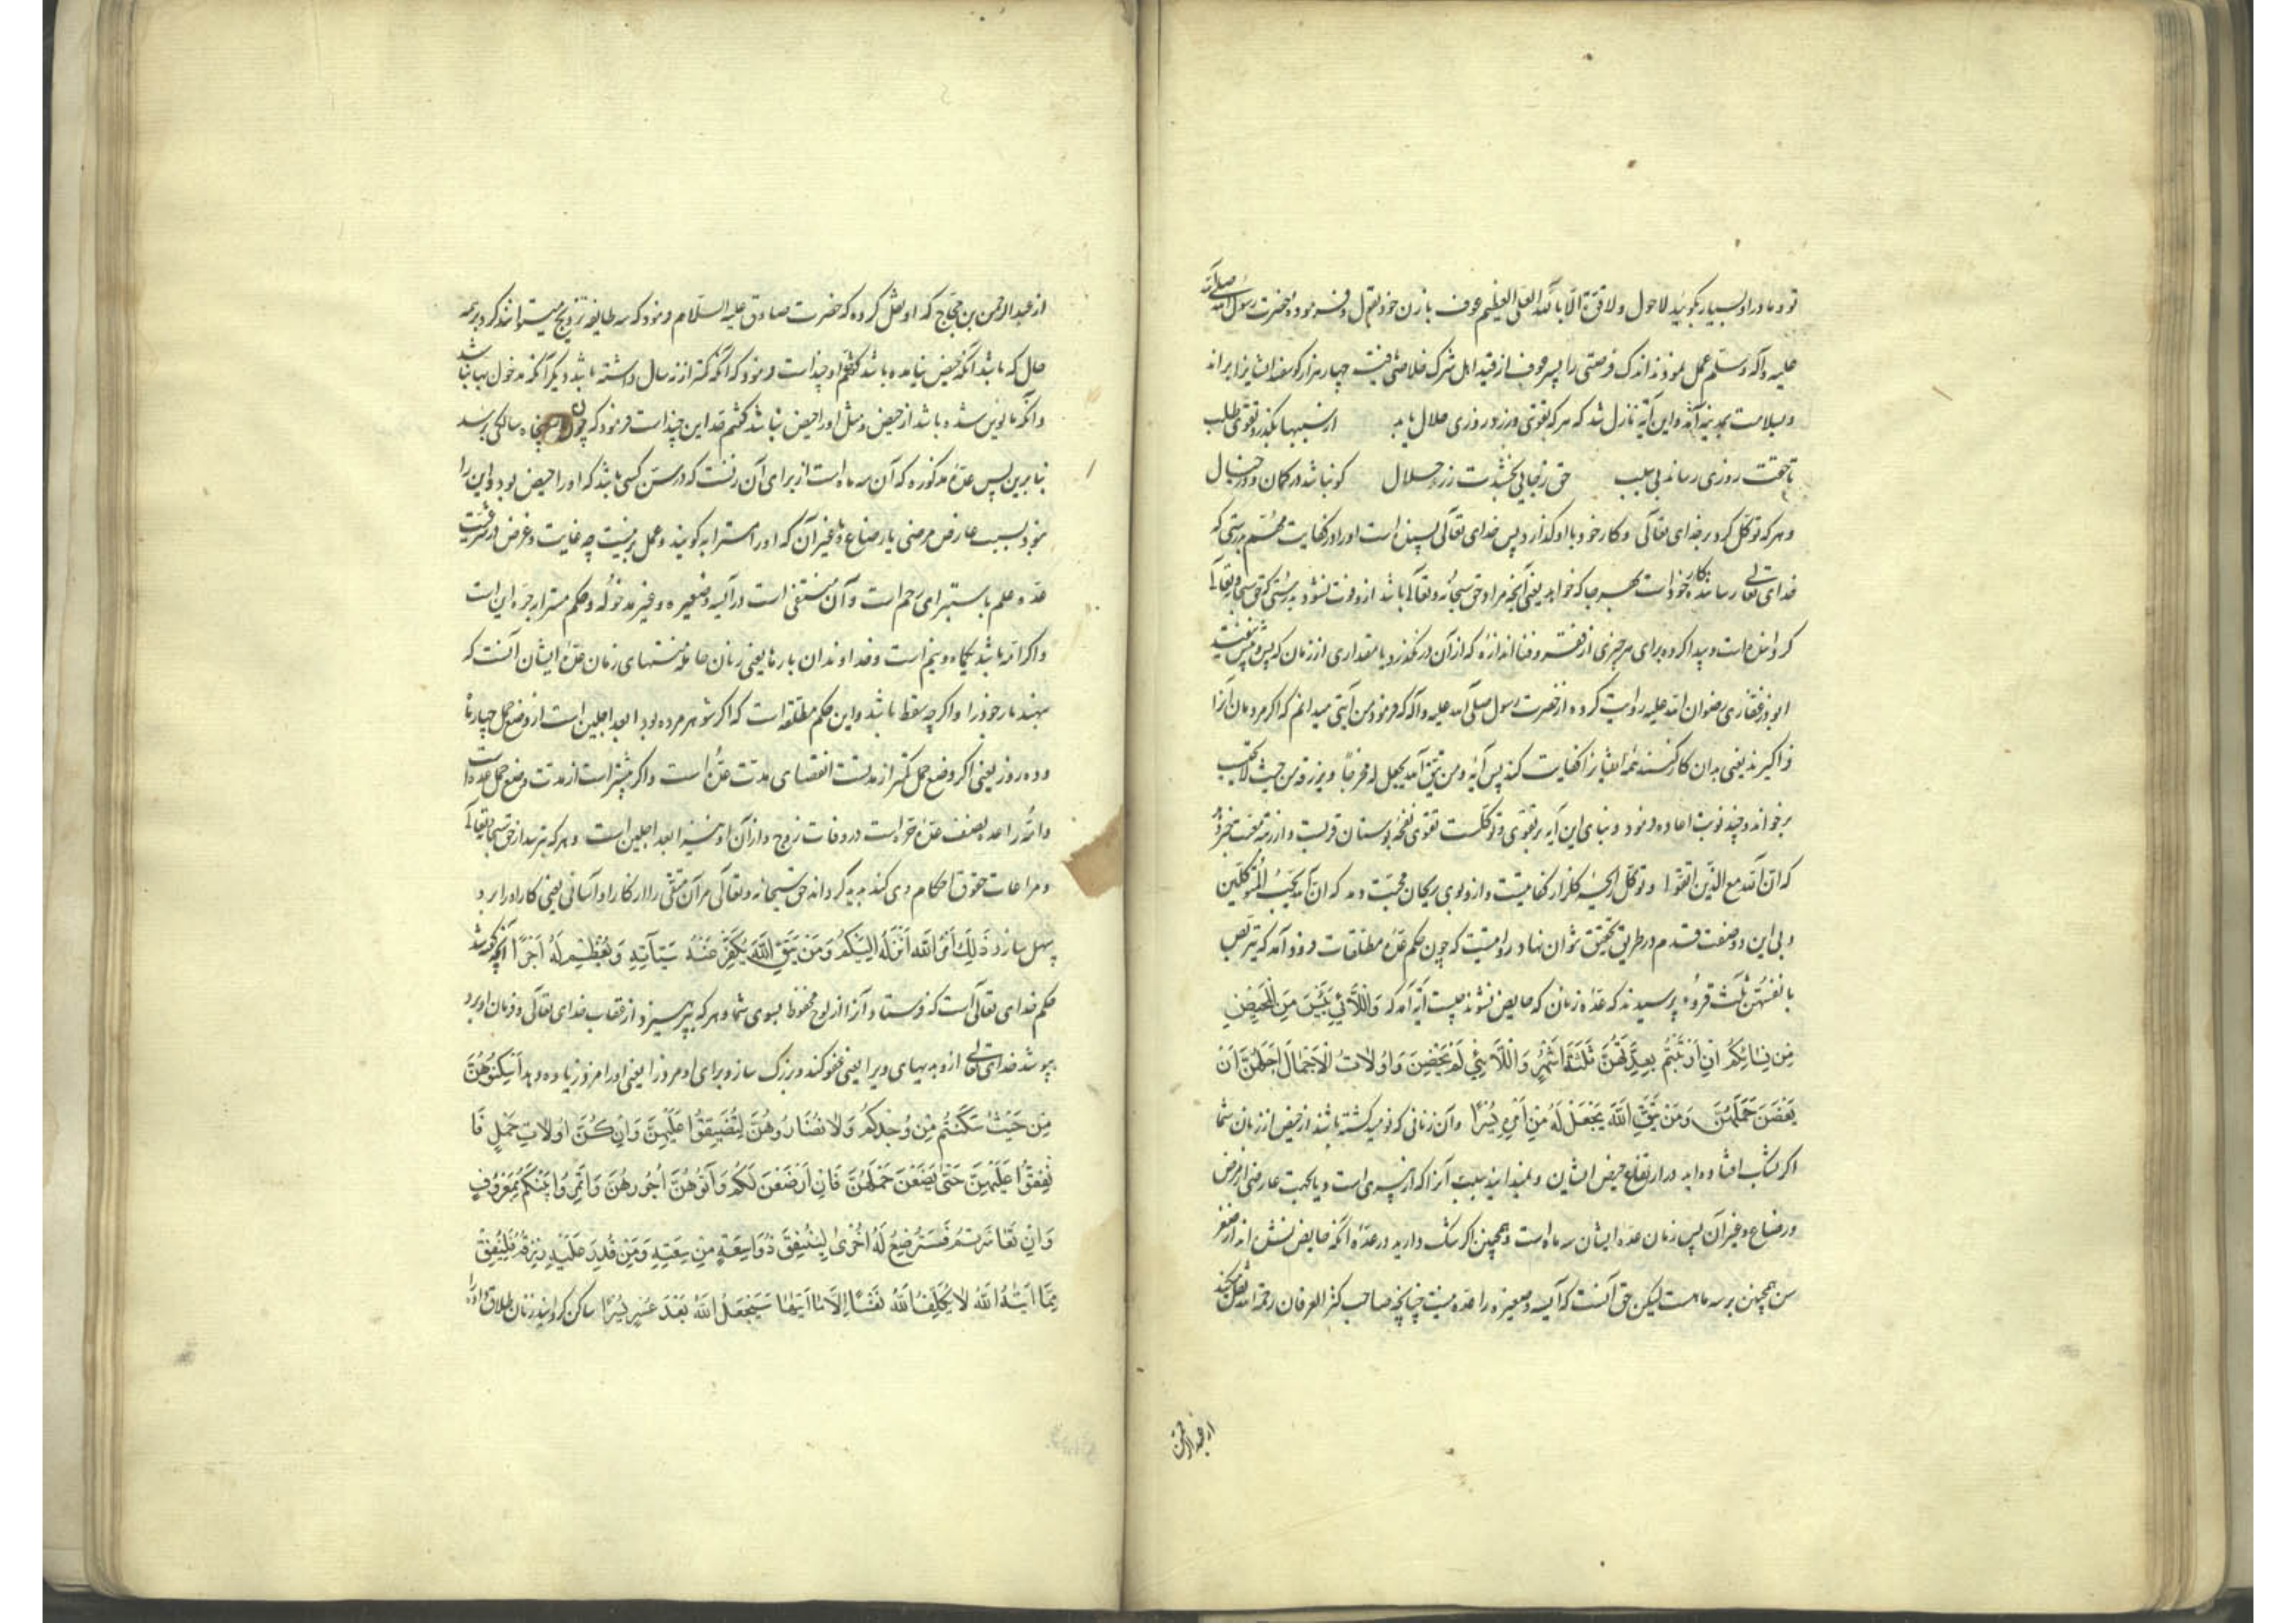 تو و مادر او بسیار بگویید لا حول ولا قوة الا بالله العلی العظیم عوف با زن خود بقول فرموده حضرت رسول الله صلی الله
علیه وآله وسلم عمل نمودند اندک فرصتی را پسر عوف از قید اهل شرک خلاصی یافت چهار هزار گوسفند ایشانرا براند
وبسلامت بمدینه آمد واین آیة نازل شد که هر که تقوی ورزد روزی حلال یابد از سببها بگذر وتقوی طلب
تا حقت روزی رساند بی سبب حق ز جایی بخشدت رزق حلال کو نباشد در گمان ودر خیال
وهر که توکل کرد بر خدای تعالی وکار خود باو گذارد پس خدای تعالی بسنده است اورا در کفایت مهم بدرستی که
خدای تعالی رساننده کار خود است بهر جا که خواهد یعنی آنچه مراد حق سبحانه وتعالی باشد از وفوت نشود بدرستی که حق سبحانه وتعالی
گردانیده است و پیدا کرده برای هر چیزی از فقر وغنا اندازهٔ که از آن در نگذرد یا مقداری از زمان که پس وپیش نیفتد
ابوذر غفاری رضوان الله علیه روایت کرده از حضرت رسول صلی الله علیه وآله که فرمود من آیتی میدانم که اگر مردمان آنرا
فرا گیرند یعنی بدان کار کنند همه ایشانرا کفایت کند پس آیه ومن یتق الله یجعل له مخرجا ویرزقه من حیث لا یحتسب
برخواند و چند نوبت اعاده فرمود وبنای این آیه بر تقوی وتوکلست تقوی نفحهٔ بوستان قربت واز رتبه معیت خبر دهد
که ان الله مع الذین اتقوا وتوکل رایحهٔ گلزار کفایتست واز وبوی ریحان محبت دمد که ان الله یحب المتوکلین
وبی این دو صفت قدم در طریق تحقیق نتوان نهاد روایتست که چون حکم عدهٔ مطلقات فرود آمد که یتربصن
بانفسهن ثلثة قروء پرسیدند که عدهٔ زنان که حایض نشوند چیست آیه آمد که وَاللَّائِي يَئِسْنَ مِنَ الْمَحِيضِ
مِن نِسَائِكُمْ اِنِ ارْتَبْتُمْ فَعِدَّتُهُنَّ ثَلٰثَةُ اَشْهُرٍ وَاللَّائِي لَمْ يَحِضْنَ وَاُولَاتُ الْاَحْمَالِ اَجَلُهُنَّ اَنْ
يَضَعْنَ حَمْلَهُنَّ وَمَنْ يَتَّقِ اللّٰهَ يَجْعَلْ لَهُ مِنْ اَمْرِهِ يُسْرًا وآن زنانی که نومید گشته باشند از حیض از زنان شما
اگر بشک افتاده اید در ارتفاع حیض ایشان ونمیدانید سبب آنرا که از پیری است ویا بجهت عارضی از مرض
ورضاع وغیر آن پس زمان عدهٔ ایشان سه ماه است وهمچنین اگر شک دارید در عدهٔ آنکه حایض نشده اند از صغر
سن همچنین بر سه ماهست لیکن حق آنست که آیسه وصغیره را عده نیست چنانچه صاحب کنز العرفان رحمه الله نقل میکند
از عبدالرحمن
از عبدالرحمن بن حجاج که او نقل کرده که حضرت صادق علیه السلام فرمود که سه طایفه تزویج میتوانند کرد بر همه
حال که باشد آنکه حیض نیامده باشد گفتم او چند است فرمود که آنکه کمتر از نه سال داشته باشد دیگر آنکه مدخول بها نباشد
وآنکه مایوس شده باشد از حیض ومثل او را حیض نباشد گفتم حد این چند است فرمود که چون پنجاه سالگی برسد
بنابرین پس عدهٔ مذکوره که آن سه ماه است از برای آن زنست که در سن کسی باشد که او را حیض بود واین را
نبود بسبب عارض مرضی یا رضاع ویا غیر آن که او را مسترابه گویند وعمل برینست چه غایت وغرض در شرعیت
عده علم باستبرای رحم است وآن منتفی است در آیسه وصغیره وغیر مدخوله وحکم مسترابه حره این است
واگر امه باشد یکماه ونیم است وخداوندان بارها یعنی زنان حامله منتهای زمان عدهٔ ایشان آنست که
بنهند بار خود را واگر چه سقط باشد واین حکم مطلقه است که اگر شوهر مرده بود ابعد اجلین است از وضع حمل چهار ماه
وده روز یعنی اگر وضع حمل کمتر از مدتست انقضای مدت عده است واگر بیشتر است از مدت وضع حمل عده است
وامه را عده نصف عدهٔ حره است در وفات زوج واز آن او نیز ابعد اجلین است وهر که بترسد از حق سبحانه وتعالی
ومراعات حقوق احکام وی کند پدید گرداند حق سبحانه وتعالی مر آن متقی را از کار او آسانی یعنی کار او را برو
سهل سازد ذٰلِكَ اَمْرُ اللّٰهِ اَنْزَلَهُ اِلَيْكُمْ وَمَنْ يَتَّقِ اللّٰهَ يُكَفِّرْ عَنْهُ سَيِّآتِهِ وَيُعْظِمْ لَهُ اَجْرًا آنچه مذکور شد
حکم خدای تعالی است که فرستاد آنرا از لوح محفوظ بسوی شما وهر که بپرهیزد از عقاب خدای تعالی وفرمان او برد
بپوشد خدای تعالی ازو بدیهای ویرا یعنی عفو کند وبزرگ سازد برای او مزد را یعنی او را مزد زیاده دهد اَسْكِنُوهُنَّ
مِنْ حَيْثُ سَكَنْتُمْ مِنْ وُجْدِكُمْ وَلَا تُضَارُّوهُنَّ لِتُضَيِّقُوا عَلَيْهِنَّ وَاِنْ كُنَّ اُولَاتِ حَمْلٍ فَا
نْفِقُوا عَلَيْهِنَّ حَتّٰى يَضَعْنَ حَمْلَهُنَّ فَاِنْ اَرْضَعْنَ لَكُمْ وَآتُوهُنَّ اُجُورَهُنَّ وَاْتَمِرُوا بَيْنَكُمْ بِمَعْرُوفٍ
وَاِنْ تَعَاسَرْتُمْ فَسَتُرْضِعُ لَهُ اُخْرٰى لِيُنْفِقْ ذُو سَعَةٍ مِنْ سَعَتِهِ وَمَنْ قُدِرَ عَلَيْهِ رِزْقُهُ فَلْيُنْفِقْ
مِمَّا اٰتٰيهُ اللّٰهُ لَا يُكَلِّفُ اللّٰهُ نَفْسًا اِلَّا مَا اٰتٰيهَا سَيَجْعَلُ اللّٰهُ بَعْدَ عُسْرٍ يُسْرًا ساکن گردانید زنان طلاق داده را